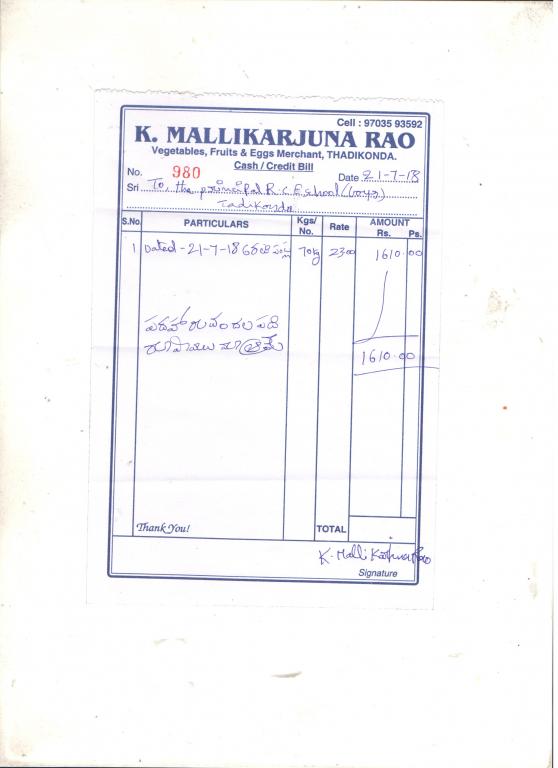 Cell : 97035 93592
K. MALLIKARJUNA RAO
Vegetables, Fruits & Eggs Merchant, THADIKONDA.
Cash / Credit Bill
No. 980 Date 21-7-18
Sri To the principal R C E School (boys)
Tadikonda
S.No. PARTICULARS Kgs/ No. Rate AMOUNT Rs. Ps.
1 Dated - 21-7-18 70kg 23.00 1610.00
పదహారు వందల పది
రూపాయలు మాత్రమే
1610.00
Thank You! TOTAL
K. Malli Karjuna Rao
Signature